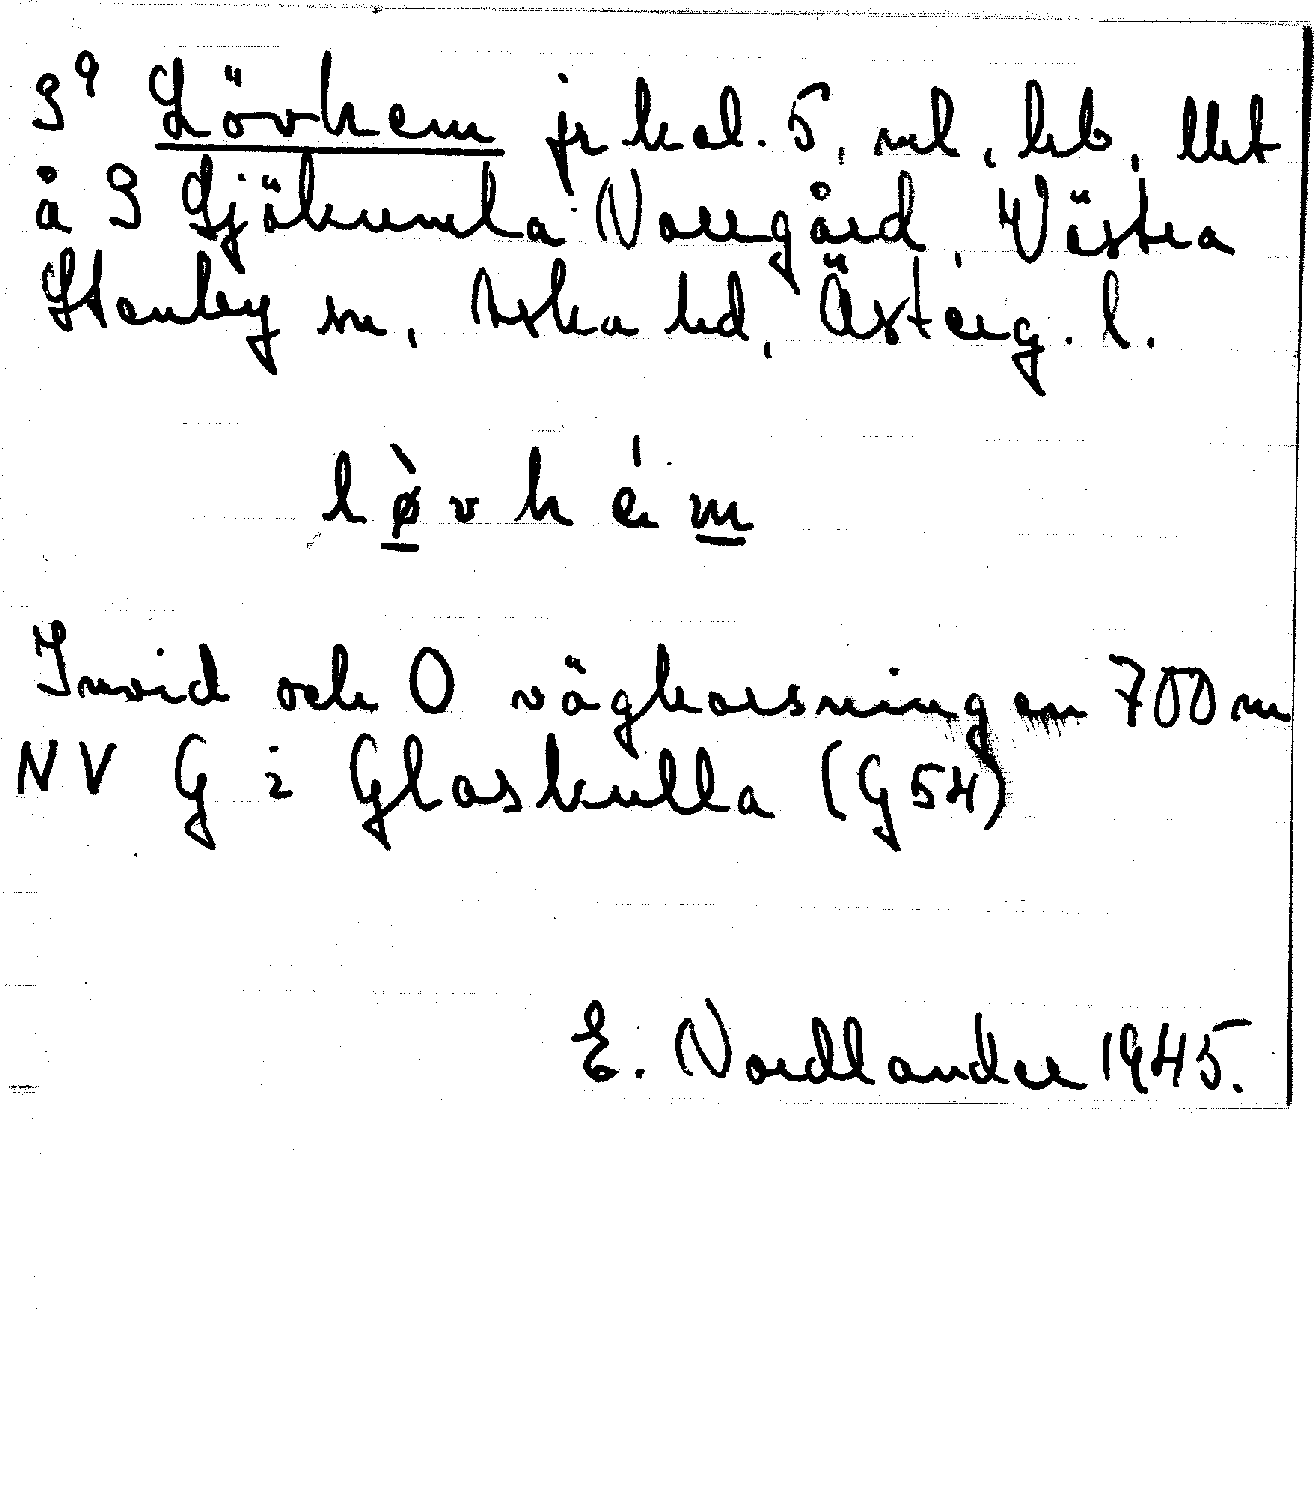 39 Lövhem jr kol. 5, ml, hb, llbt
å 3 Sjökumla Norrgård, Västra
Stenby sn, Aska hd, Österg. l.
lø̀vhém
Invid och O vägkorsningen 700 m
NV G i Glaskulla (G54)
E. Nordlander 1945.